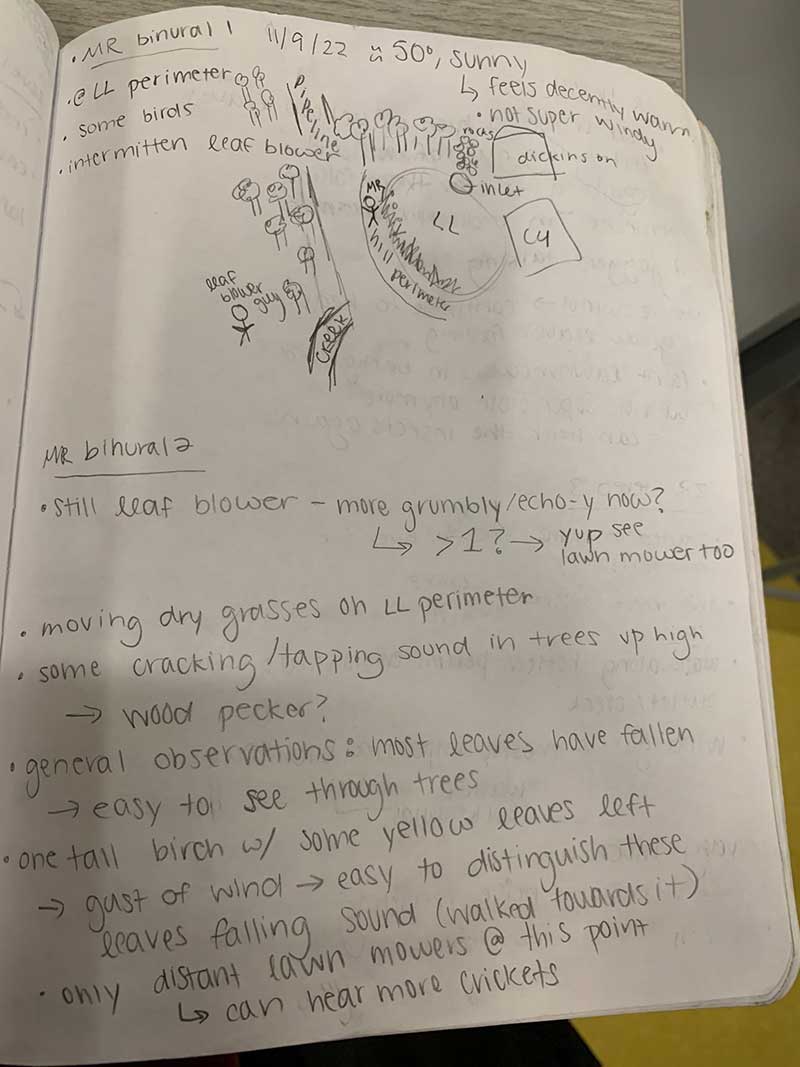 • MR binural 1 11/9/22 ~ 50°, sunny
↳ feels decently warm
• @ LL perimeter
• not super windy
• some birds
• intermitten leaf blower
pipeline
rocks
dickinson
inlet
MR
LL
C4
hill perimeter
leaf
blower
guy
creek
MR binural 2
• still leaf blower – more grumbly/echo-y now?
↳ >1? → yup see
lawn mower too
• moving dry grasses on LL perimeter
• some cracking/tapping sound in trees up high
→ wood pecker?
• general observations: most leaves have fallen
→ easy to see through trees
• one tall birch w/ some yellow leaves left
→ gust of wind → easy to distinguish these
leaves falling sound (walked towards it)
• only distant lawn mowers @ this point
↳ can hear more crickets